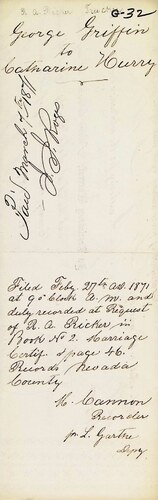 G-32
George Griffin
to
Catharine Hurry
Paid March 7th 1871
Filed Feby. 27th A.D. 1871
at 9 o'Clock A.M. and
duly recorded at Request
of R. A. Ricker in
Book No 2. Marriage
Certif.s page 46.
Records Nevada
County
H. Cannon
Recorder
pr L. Garthe
Depy